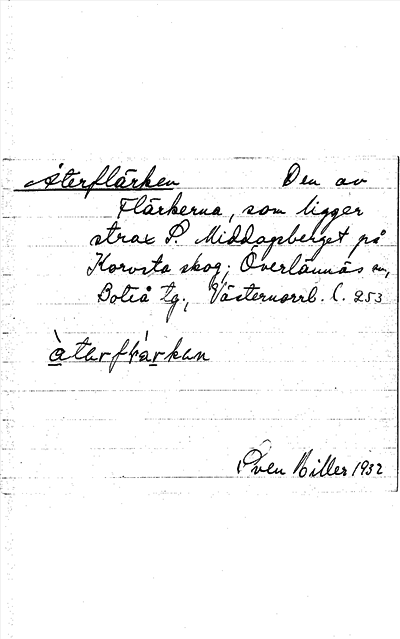 Återflärken Den av
Flärkerna, som ligger
strax S. Middagsberget på
Korvsta skog; Överlännäs sn,
Boteå tg., Västernorrl. l. 253
àterflàrkan
Sven Hiller 1932